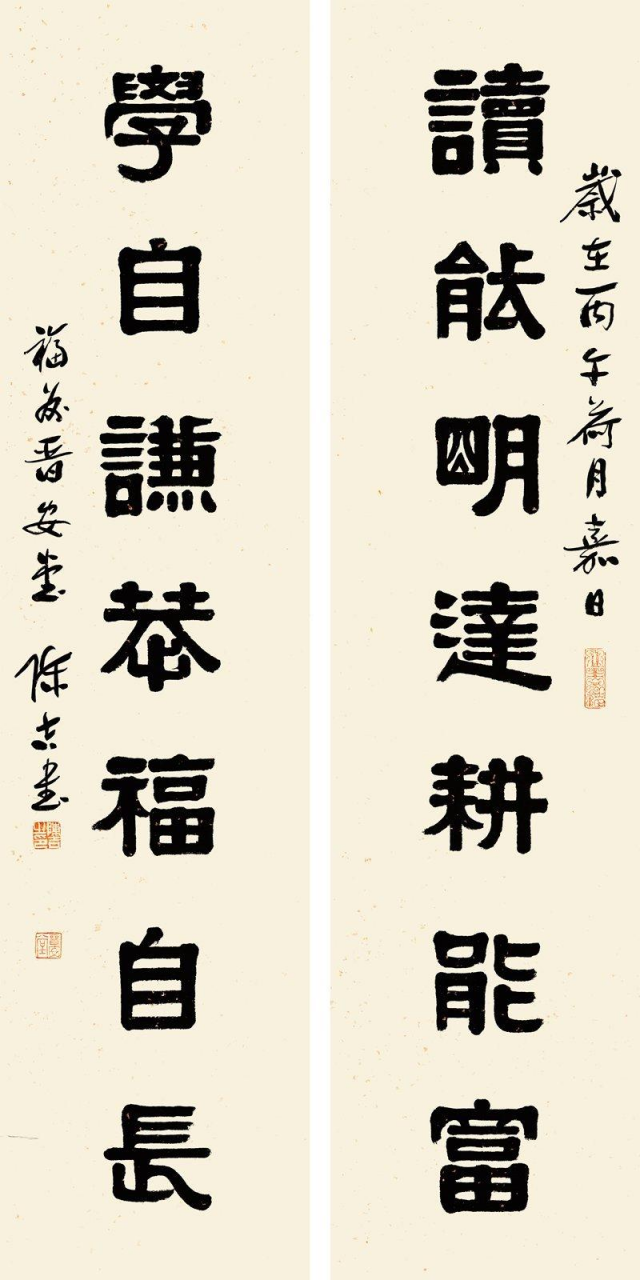 歲在丙午荷月嘉日
讀能明達耕能富
學自謙恭福自長
福晉安堂 陳吉書